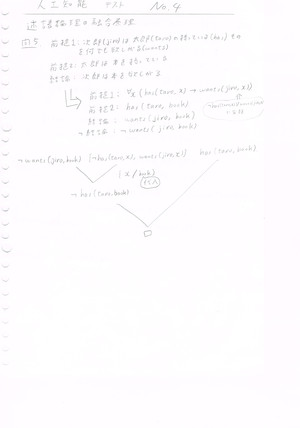 人工知能 テスト No.4
述語論理の融合原理
問5 前提1: 次郎(jiro)は太郎(taro)の持っている(has)もの
を何でも欲しがる(wants)
前提2: 太郎は本を持っている
結論: 次郎は本を欲しがる
前提1: ∀x(has(taro, x) → wants(jiro, x))
前提2: has(taro, book)
結論: wants(jiro, book)
¬結論: ¬wants(jiro, book)
¬wants(jiro, book) ¬has(taro, x), wants(jiro, x) has(taro, book)
x/book
代入
¬has(taro, book)
□